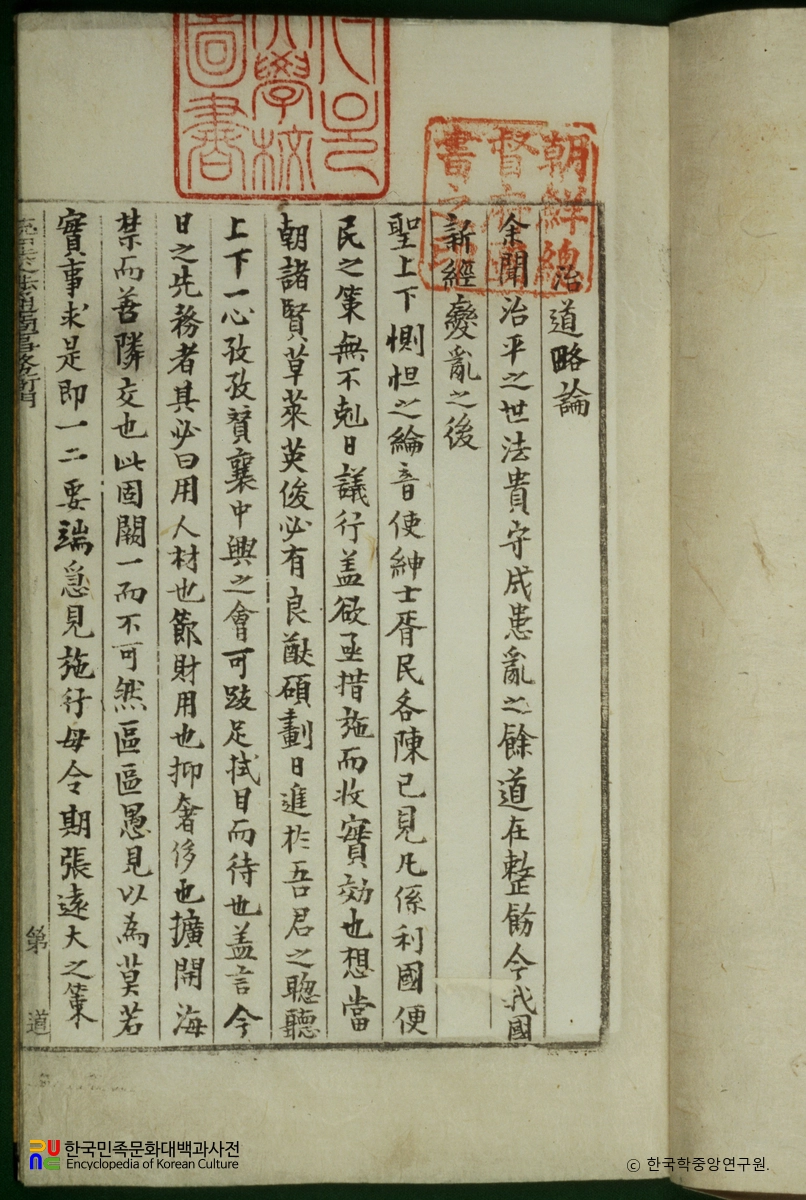 治道略論
余聞治平之世法貴守成患亂之餘道在整飭今我國
新經變亂之後
聖上下惻怛之綸音使紳士胥民各陳已見凡係利國便
民之策無不剋日議行盖欲亟措施而收實効也想當
朝諸賢草萊英俊必有良猷碩劃日進於吾君之聰聽
上下一心孜孜贊襄中興之會可跂足拭目而待也盖言今
日之先務者其必曰用人材也節財用也抑奢侈也擴開海
禁而善隣交也此固闕一而不可然區區愚見以為莫若
實事求是即一二要端急見施行毋令期張遠大之策
第 道
朝鮮總
督府
書之
大學校
圖書
한국민족문화대백과사전
Encyclopedia of Korean Culture
ⓒ 한국학중앙연구원.